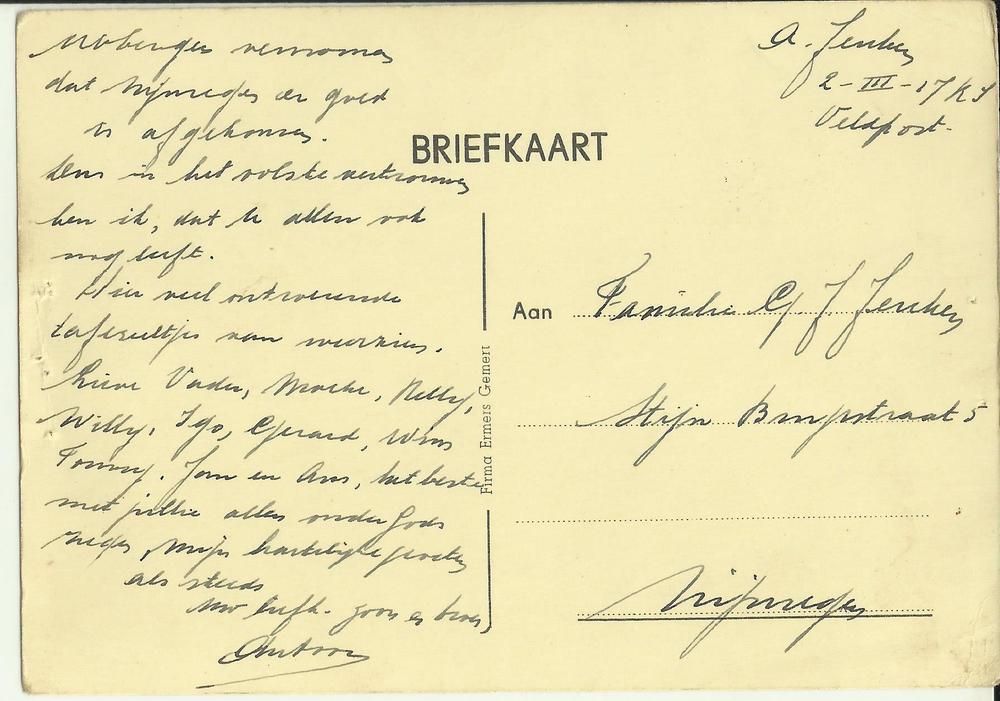 vernomen
dat Nijmegen er goed
is afgekomen.
in het volste vertrouwen
ben ik, dat U allen ook
nog leeft.
Hier veel ontroerende
tafereeltjes van
Lieve Vader, Moeke, Nelly,
Willy, Gerard, Wim
Tonny, Jan en Ans, het beste
met jullie allen onder Gods
zegen, mijn hartelijke groeten
als steeds
Uw liefh. zoon en broer,
Antoon
BRIEFKAART
Firma Ermers Gemert
A.
2-III-17 R.I
Veldpost.
Aan Familie J.
Stijn
Nijmegen